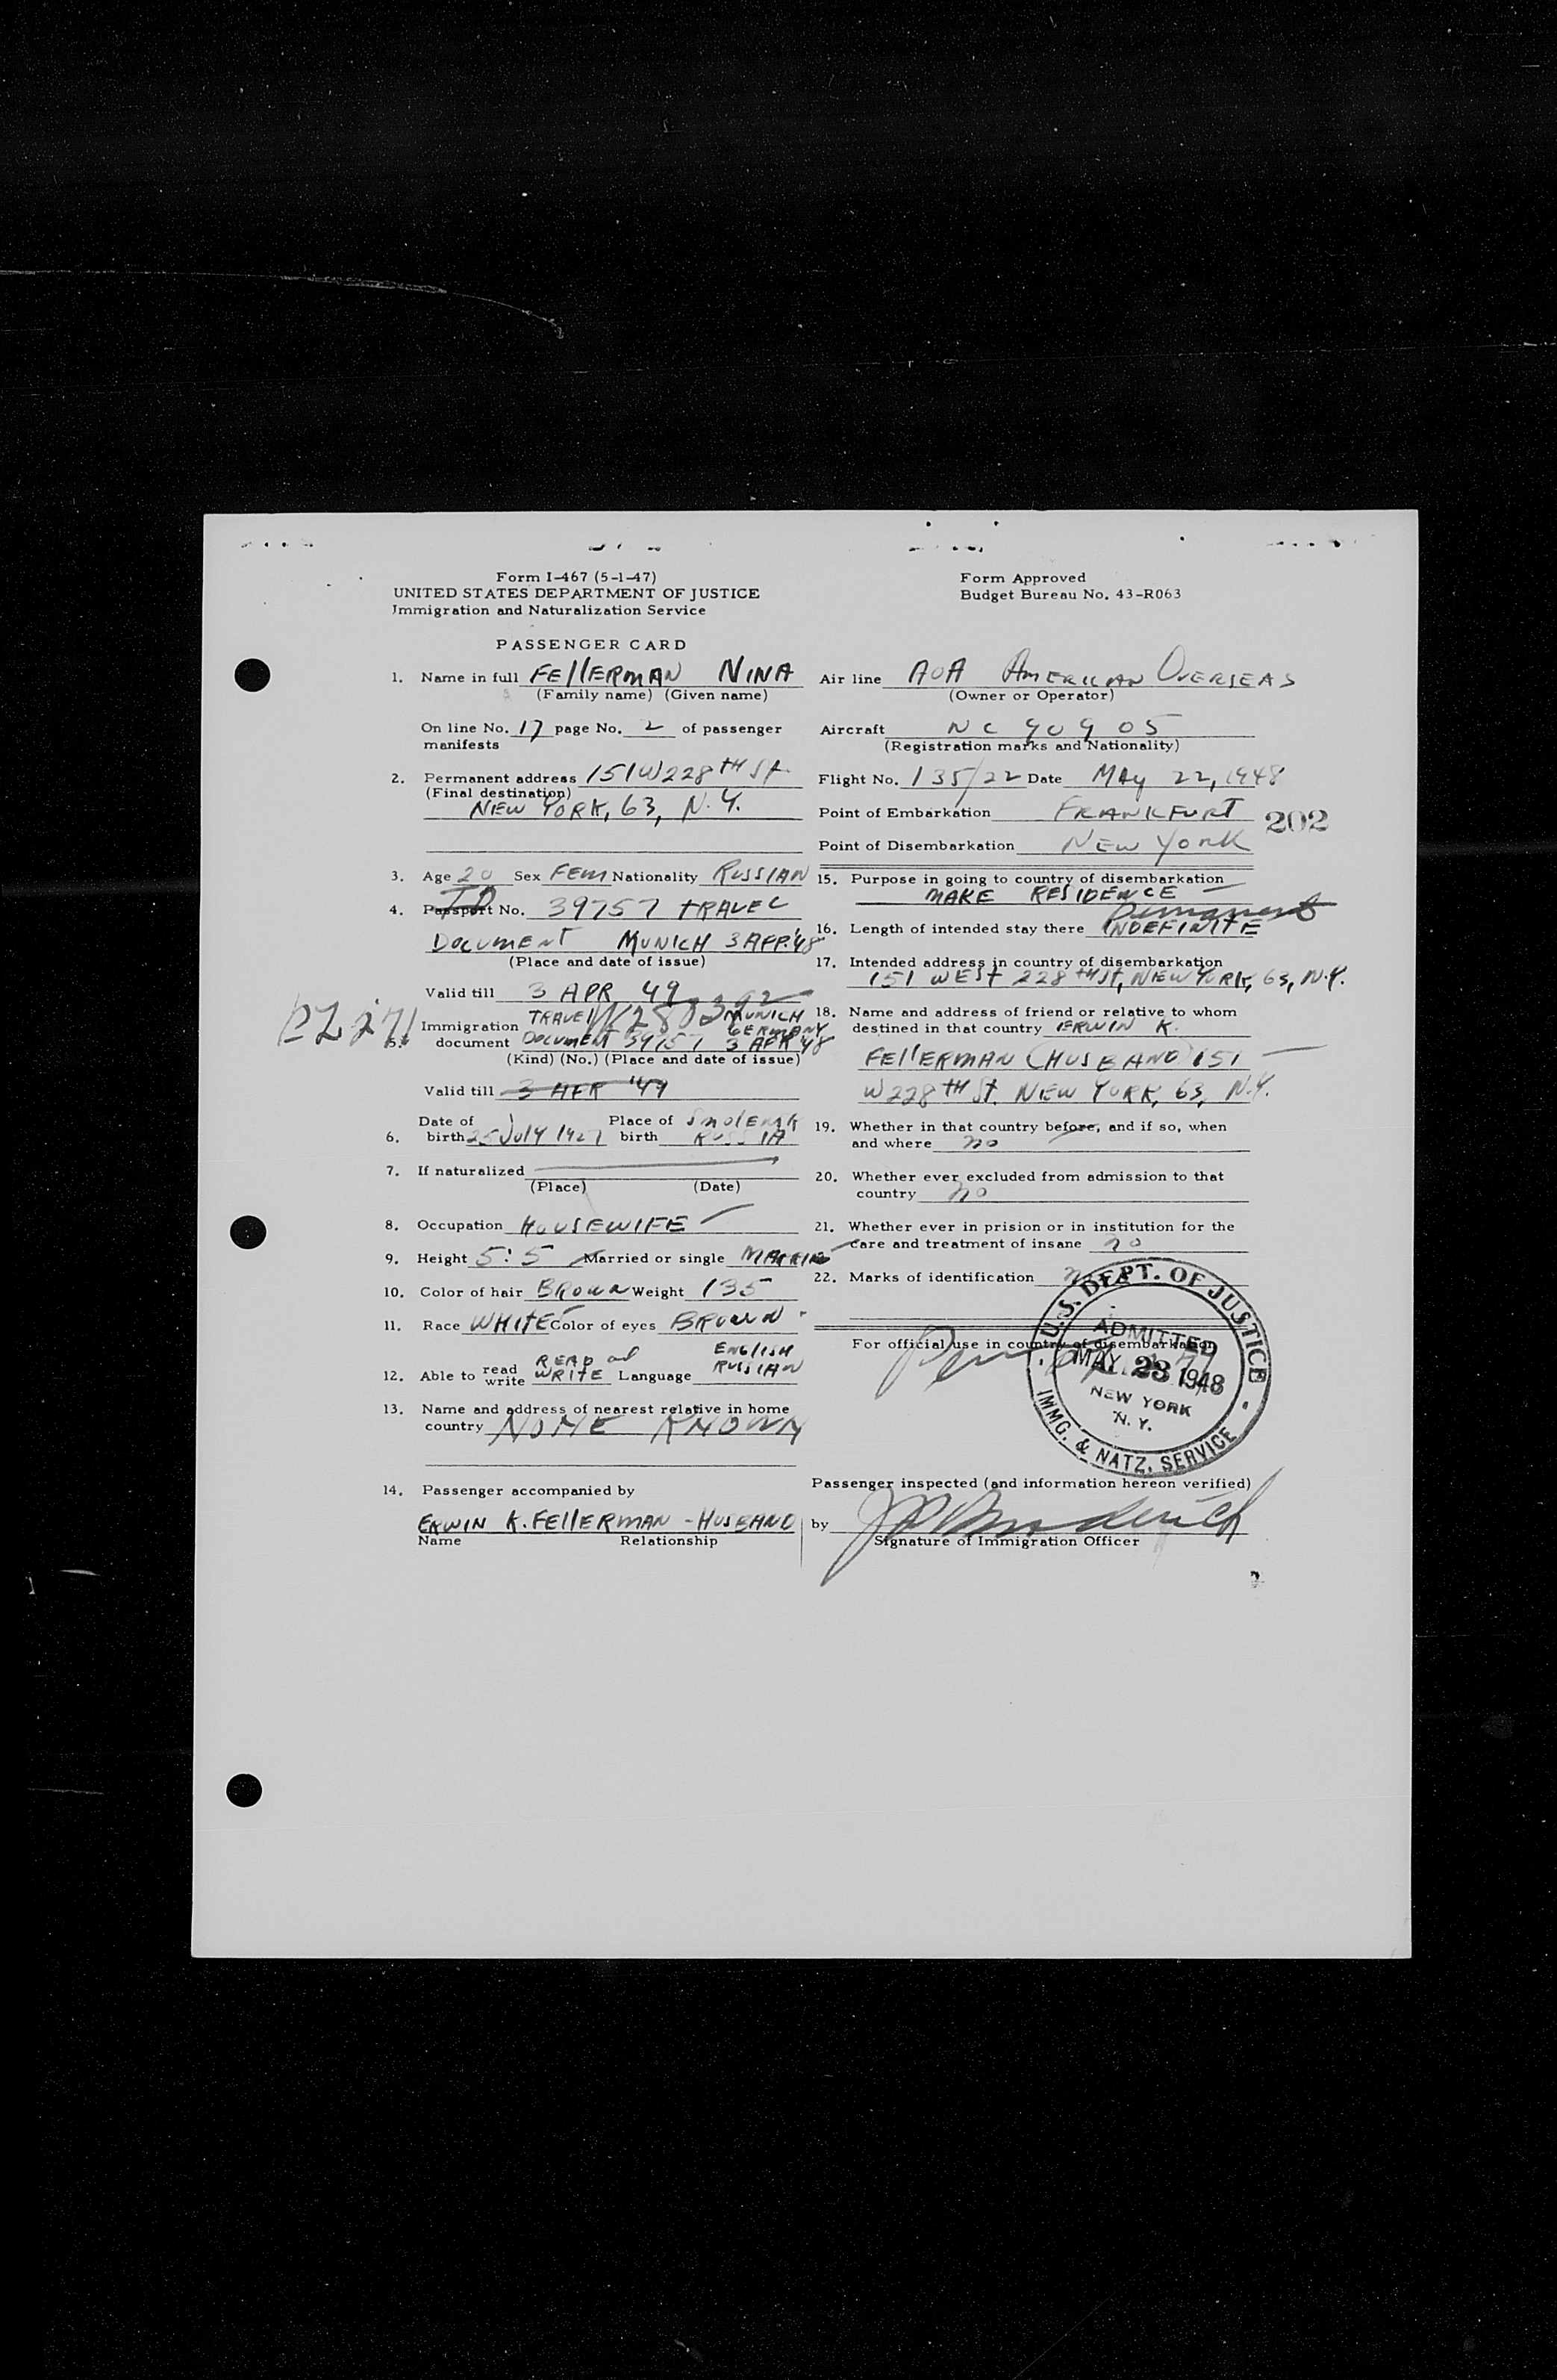 Form I-467 (5-1-47)
UNITED STATES DEPARTMENT OF JUSTICE
Immigration and Naturalization Service
Form Approved
Budget Bureau No. 43-R063
PASSENGER CARD
1. Name in full FEllERMAN NINA
(Family name) (Given name)
On line No. 17 page No. 2 of passenger
manifests
2. Permanent address 151 W 228TH St.
(Final destination)
NEW YORK, 63, N.Y.
3. Age 20 Sex FEM Nationality RUSSIAN
ID
4. Passport No. 39757 TRAVEL
DOCUMENT MUNICH 3 APR. '48
(Place and date of issue)
Valid till 3 APR 49
TRAVEl MUNICH
5. Immigration GERMANY
document DOCUMENT 39757 3 APR '48
(Kind) (No.) (Place and date of issue)
Valid till 3 APR '49
Date of Place of SmolENSK
6. birth 25 JUlY 1927 birth RUSSIA
7. If naturalized
(Place) (Date)
8. Occupation HOUSEWIFE
9. Height 5:5 Married or single MARRIED
10. Color of hair BROWN Weight 135
11. Race WHITE Color of eyes BROWN
READ and ENGlISH
12. Able to read write WRITE Language RUSSIAN
13. Name and address of nearest relative in home
country NONE KNOWN
14. Passenger accompanied by
ERWIN K. FEllERMAN - HUSBAND
Name Relationship
Air line AOA AMERICAN OVERSEAS
(Owner or Operator)
Aircraft NC 90905
(Registration marks and Nationality)
Flight No. 135/22 Date MAy 22, 1948
Point of Embarkation FRANKFURT
202
Point of Disembarkation NEW YORK
15. Purpose in going to country of disembarkation
MAKE RESIDENCE
Permanent
16. Length of intended stay there INDEFINITE
17. Intended address in country of disembarkation
151 WEST 228TH St, NEW YORK, 63, N.Y.
18. Name and address of friend or relative to whom
destined in that country ERWIN K.
FEllERMAN (HUSBAND) 151
W 228TH St. NEW YORK, 63, N.Y.
19. Whether in that country before, and if so, when
and where no
20. Whether ever excluded from admission to that
country no
21. Whether ever in prision or in institution for the
care and treatment of insane no
22. Marks of identification
For official use in country of disembarkation
U.S. DEPT. OF JUSTICE
ADMITTED
MAY 23 1948
NEW YORK
N. Y.
IMMG. & NATZ. SERVICE
Passenger inspected (and information hereon verified)
by
Signature of Immigration Officer